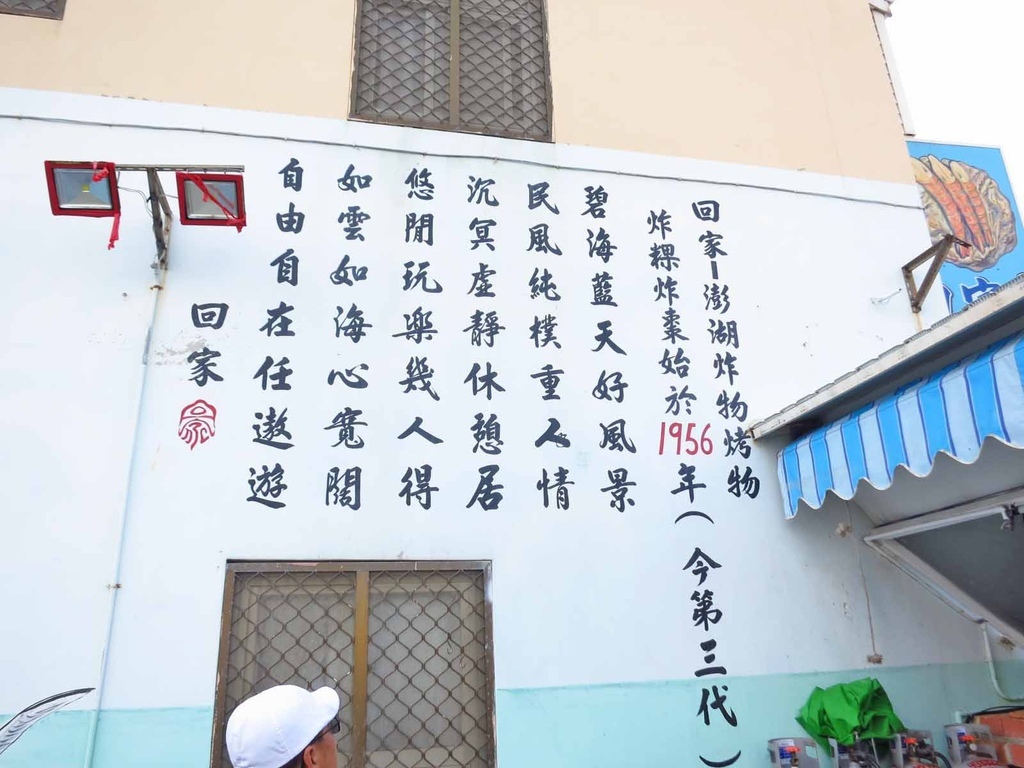 回家-澎湖炸物烤物
炸粿炸棗始於1956年(今第三代)
碧海藍天好風景
民風純樸重人情
沉冥虛靜休憩居
悠閒玩樂幾人得
如雲如海心寬闊
自由自在任遨遊
回家